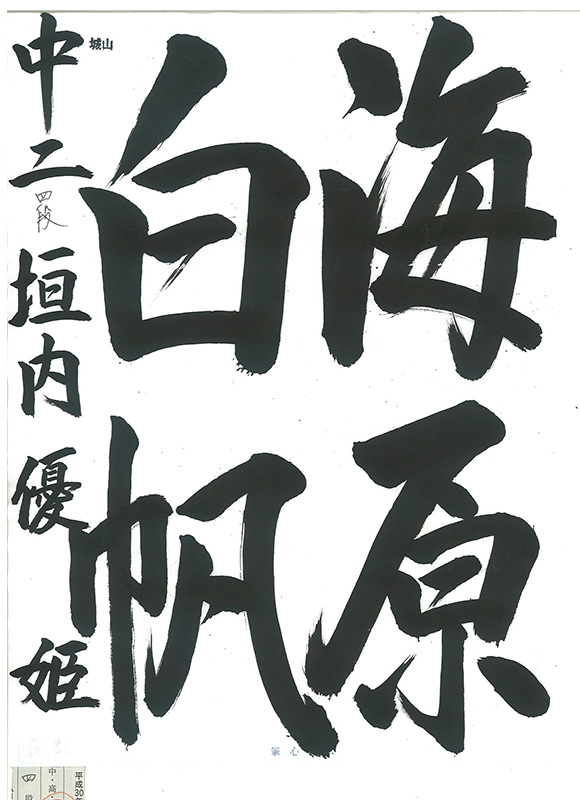 海原
白帆
城山
中二 四段 垣内 優姫
筆心
平成30年
中・高・
四